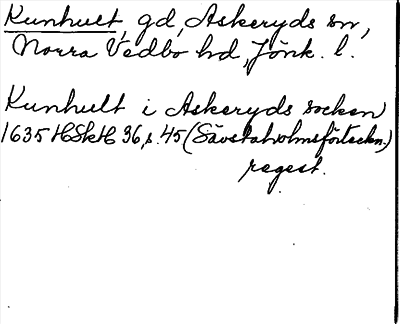 Kunhult, gd, Askeryds sn,
Norra Vedbo hd, Jönk. l.
Kunhult i Askeryds socken
1635 HSkH 36, s. 45 (Sävstaholmsförteckn.)
regest.